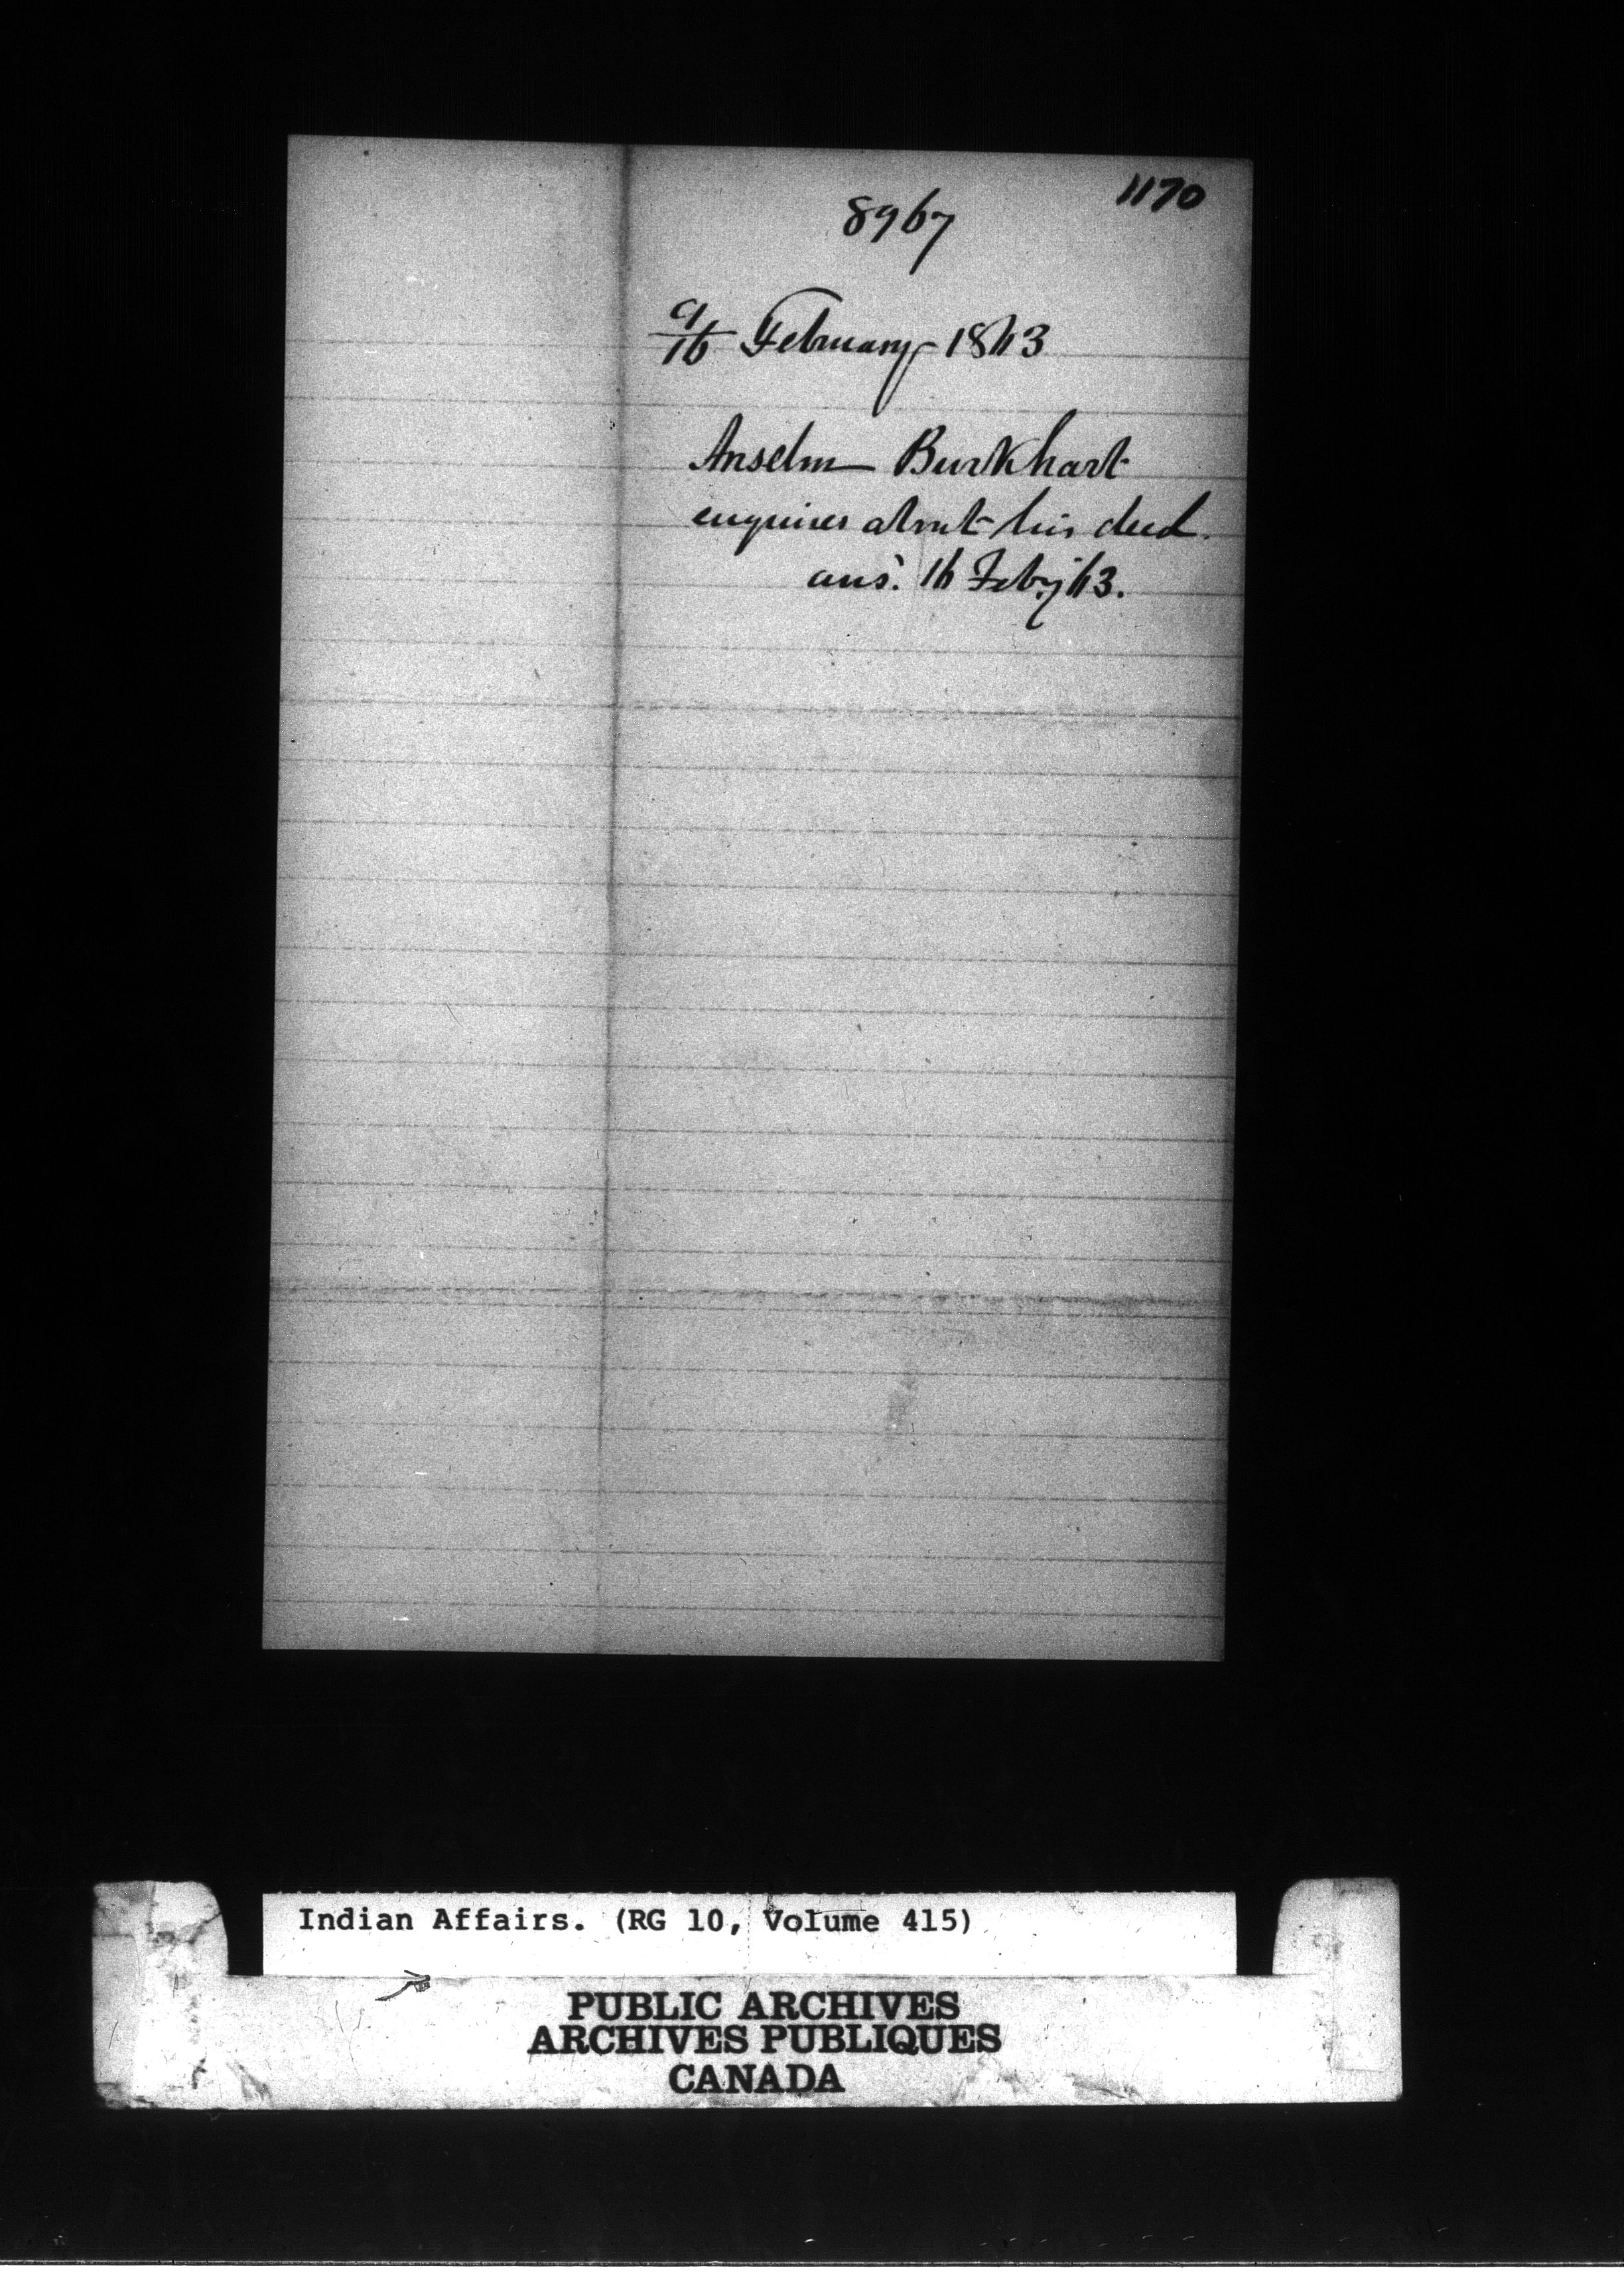 1170
8967
9/16 February 1863
Anselm Burkhart
enquires about his deed.
ans'd. 16 Feby 63.
Indian Affairs. (RG 10, Volume 415)
PUBLIC ARCHIVES
ARCHIVES PUBLIQUES
CANADA